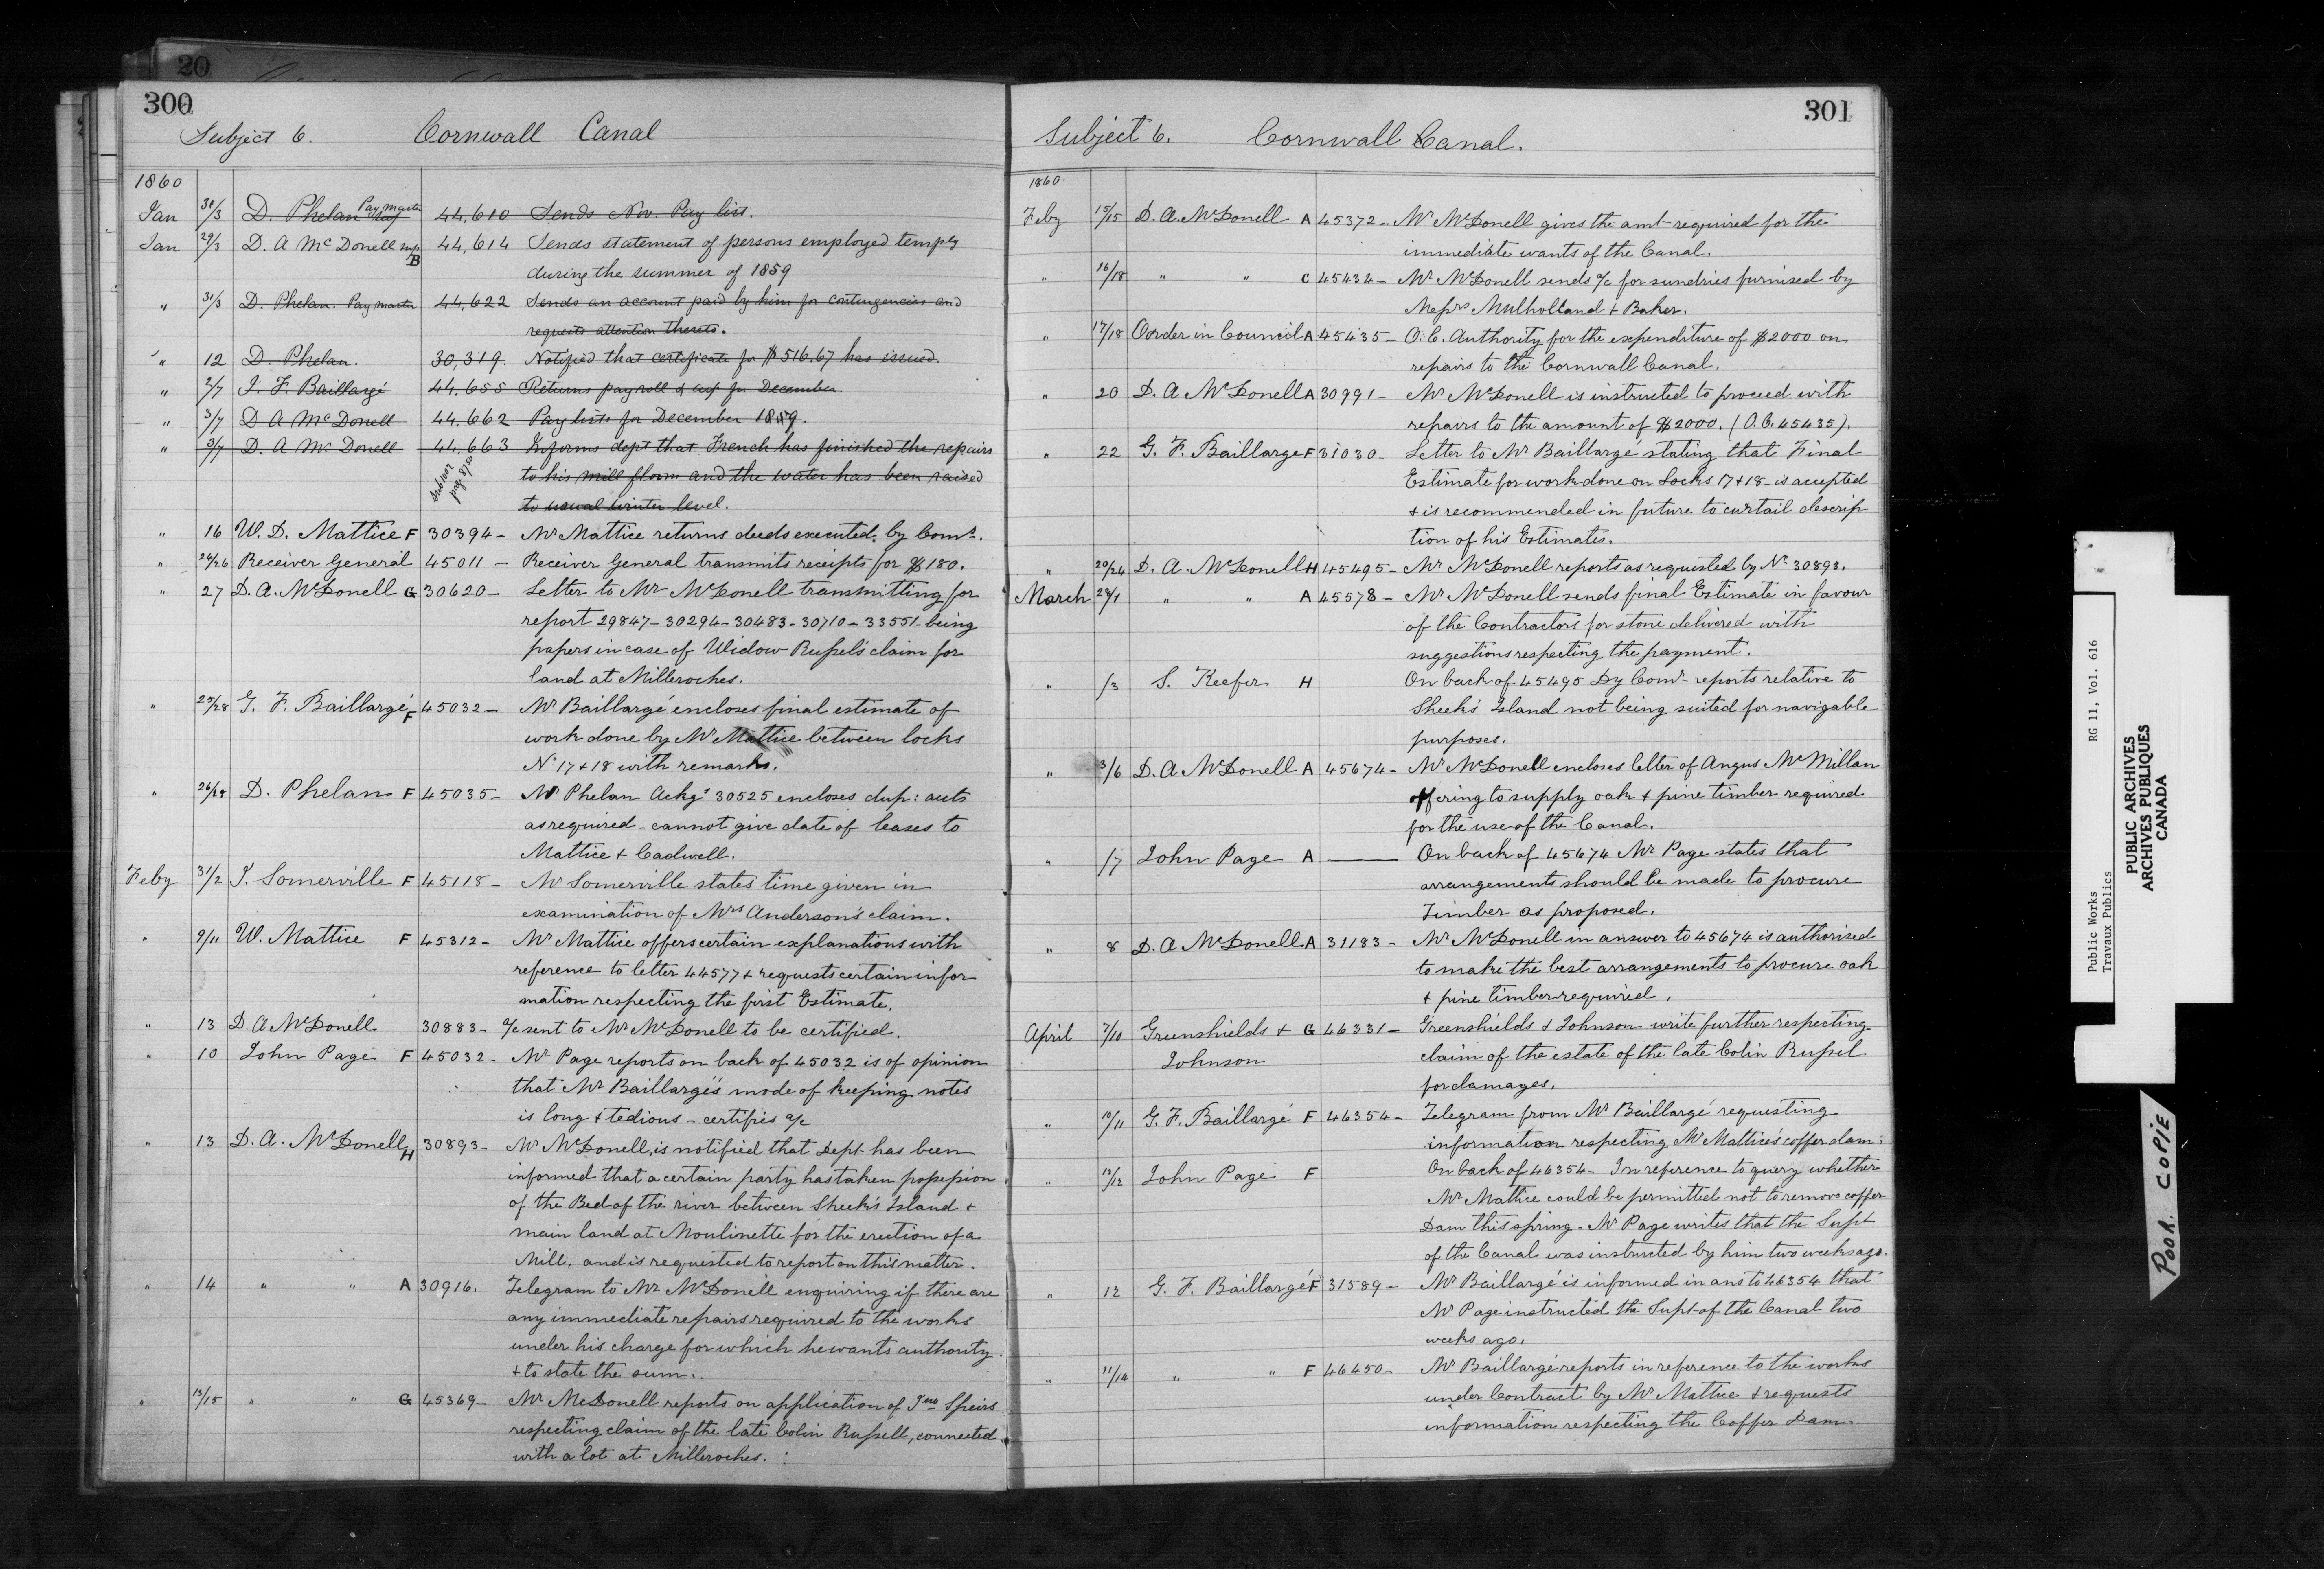 20
300
Subject 6. Cornwall Canal
1860
Jan 30/3 D. Phelan Pay Master 44,610 Sends Nov. Pay list.
Jan 29/3 D. A McDonell B 44,614 Sends statement of persons employed tempy
during the summer of 1859
" 31/3 D. Phelan. Pay master 44,622 Sends an account paid by him for contingencies and
requests attention thereto.
" 12 D. Phelan. 30,319. Notified that certificate for $516.67 has issued.
" 2/7 J. F. Baillargé 44,655 Returns payroll & acct for December
" 3/7 D A McDonell 44,662 Pay lists for December 1859.
" 9/7 D. A Mc Donell 44,663 Informs dept that French has finished the repairs
to his mill flume and the water has been raised
to usual winter level.
" 16 W. D. Mattice F 30394 - Mr Mattice returns deeds executed by Comr.
" 24/26 Receiver General 45011 - Receiver General transmits receipts for $180.
" 27 D. A. McDonell G 30620 - Letter to Mr McDonell transmitting for
report 29847 - 30294 - 30483 - 30710 - 33551 - being
papers in case of Widow Russel's claim for
land at Milleroches.
" 25/28 G. F. Baillargé F 45032 - Mr Baillargé encloses final estimate of
work done by Mr Mattice between locks
No 17 + 18 with remarks.
" 26/28 D. Phelan F 45035 - Mr Phelan Ackgs 30525 encloses dup: accts
as required - cannot give date of leases to
Mattice + Cadwell.
Feby 31/2 J. Somerville F 45118 - Mr Somerville states time given in
examination of Mrs Anderson's claim.
" 9/11 W. Mattice F 45312 - Mr Mattice offers certain explanations with
reference to letter 44577 + requests certain infor
mation respecting the first Estimate.
" 13 D. A McDonell 30883 - a/c sent to Mr McDonell to be certified.
" 10 John Page F 45032 - Mr Page reports on back of 45032 is of opinion
that Mr Baillargé's mode of keeping notes
is long + tedious - certifies a/c
" 13 D. A. McDonell H 30893 - Mr McDonell, is notified that Dept has been
informed that a certain party has taken possession
of the Bed of the river between Sheek's Island +
main land at Moulinette for the erection of a
Mill, and is requested to report on this matter.
" 14 " " A 30916. Telegram to Mr McDonell enquiring if there are
any immediate repairs required to the works
under his charge for which he wants authority
+ to state the sum.
" 13/15 " " G 45369 - Mr McDonell reports on application of Jno Speirs
respecting claim of the late Colin Russell, connected
with a lot at Milleroches.
301
Subject 6. Cornwall Canal.
1860.
Feby 15/15 D. A. McDonell A 45372 - Mr McDonell gives the amt required for the
immediate wants of the Canal.
" 16/18 " " C 45434 - Mr McDonell sends a/c for sundries furnised by
Messrs Mulholland + Baker.
" 17/18 Oorder in Council A 45435 - O. C. Authority for the expenditure of $2000 on
repairs to the Cornwall Canal.
" 20 D. A McDonell A 30991 - Mr McDonell is instructed to proceed with
repairs to the amount of $2000. (O. C. 45435).
" 22 G. F. Baillargé F 31030 - Letter to Mr Baillargé stating that Final
Estimate for work done on Locks 17 + 18 - is accepted
+ is recommended in future to curtail descrip
tion of his Estimates.
" 20/24 D. A. McDonell H 45495 - Mr McDonell reports as requested by No 30893.
March 29/1 " " A 45578 - Mr McDonell sends final Estimate in favour
of the Contractors for stone delivered with
suggestions respecting the payment.
" /3 S. Keefer H On back of 45495 Dy Comr reports relative to
Sheek's Island not being suited for navigable
purposes.
" 3/6 D. A McDonell A 45674 - Mr McDonell encloses letter of Angus McMillan
offering to supply oak + pine timber required
for the use of the Canal.
" /7 John Page A — On back of 45674 Mr Page states that
arrangements should be made to procure
Timber as proposed.
" 8 D. A McDonell A 31183 - Mr McDonell in answer to 45674 is authorised
to make the best arrangements to procure oak
+ pine timber required.
April 7/10 Greenshields + G 46331 - Greenshields + Johnson write further respecting
Johnson claim of the estate of the late Colin Russel
for damages.
" 10/11 G. F. Baillargé F 46354 - Telegram from Mr Baillargé requesting
information respecting Mr Mattice's coffer dam:
" 12/12 John Page F On back of 46354 - In reference to query whether
Mr Mattice could be permitted not to remove coffer
Dam this spring - Mr Page writes that the Supt
of the Canal was instructed by him two weeks ago.
" 12 G. F. Baillargé F 31589 - Mr Baillargé is informed in ans to 46354 that
Mr Page instructed the Supt of the Canal two
weeks ago.
" 11/14 " " F 46450 - Mr Baillargé reports in reference to the works
under Contract by Mr Mattice + requests
information respecting the Coffer Dam.
Public Works RG 11, Vol. 616
Travaux Publics
PUBLIC ARCHIVES
ARCHIVES PUBLIQUES
CANADA
POOR COPIE